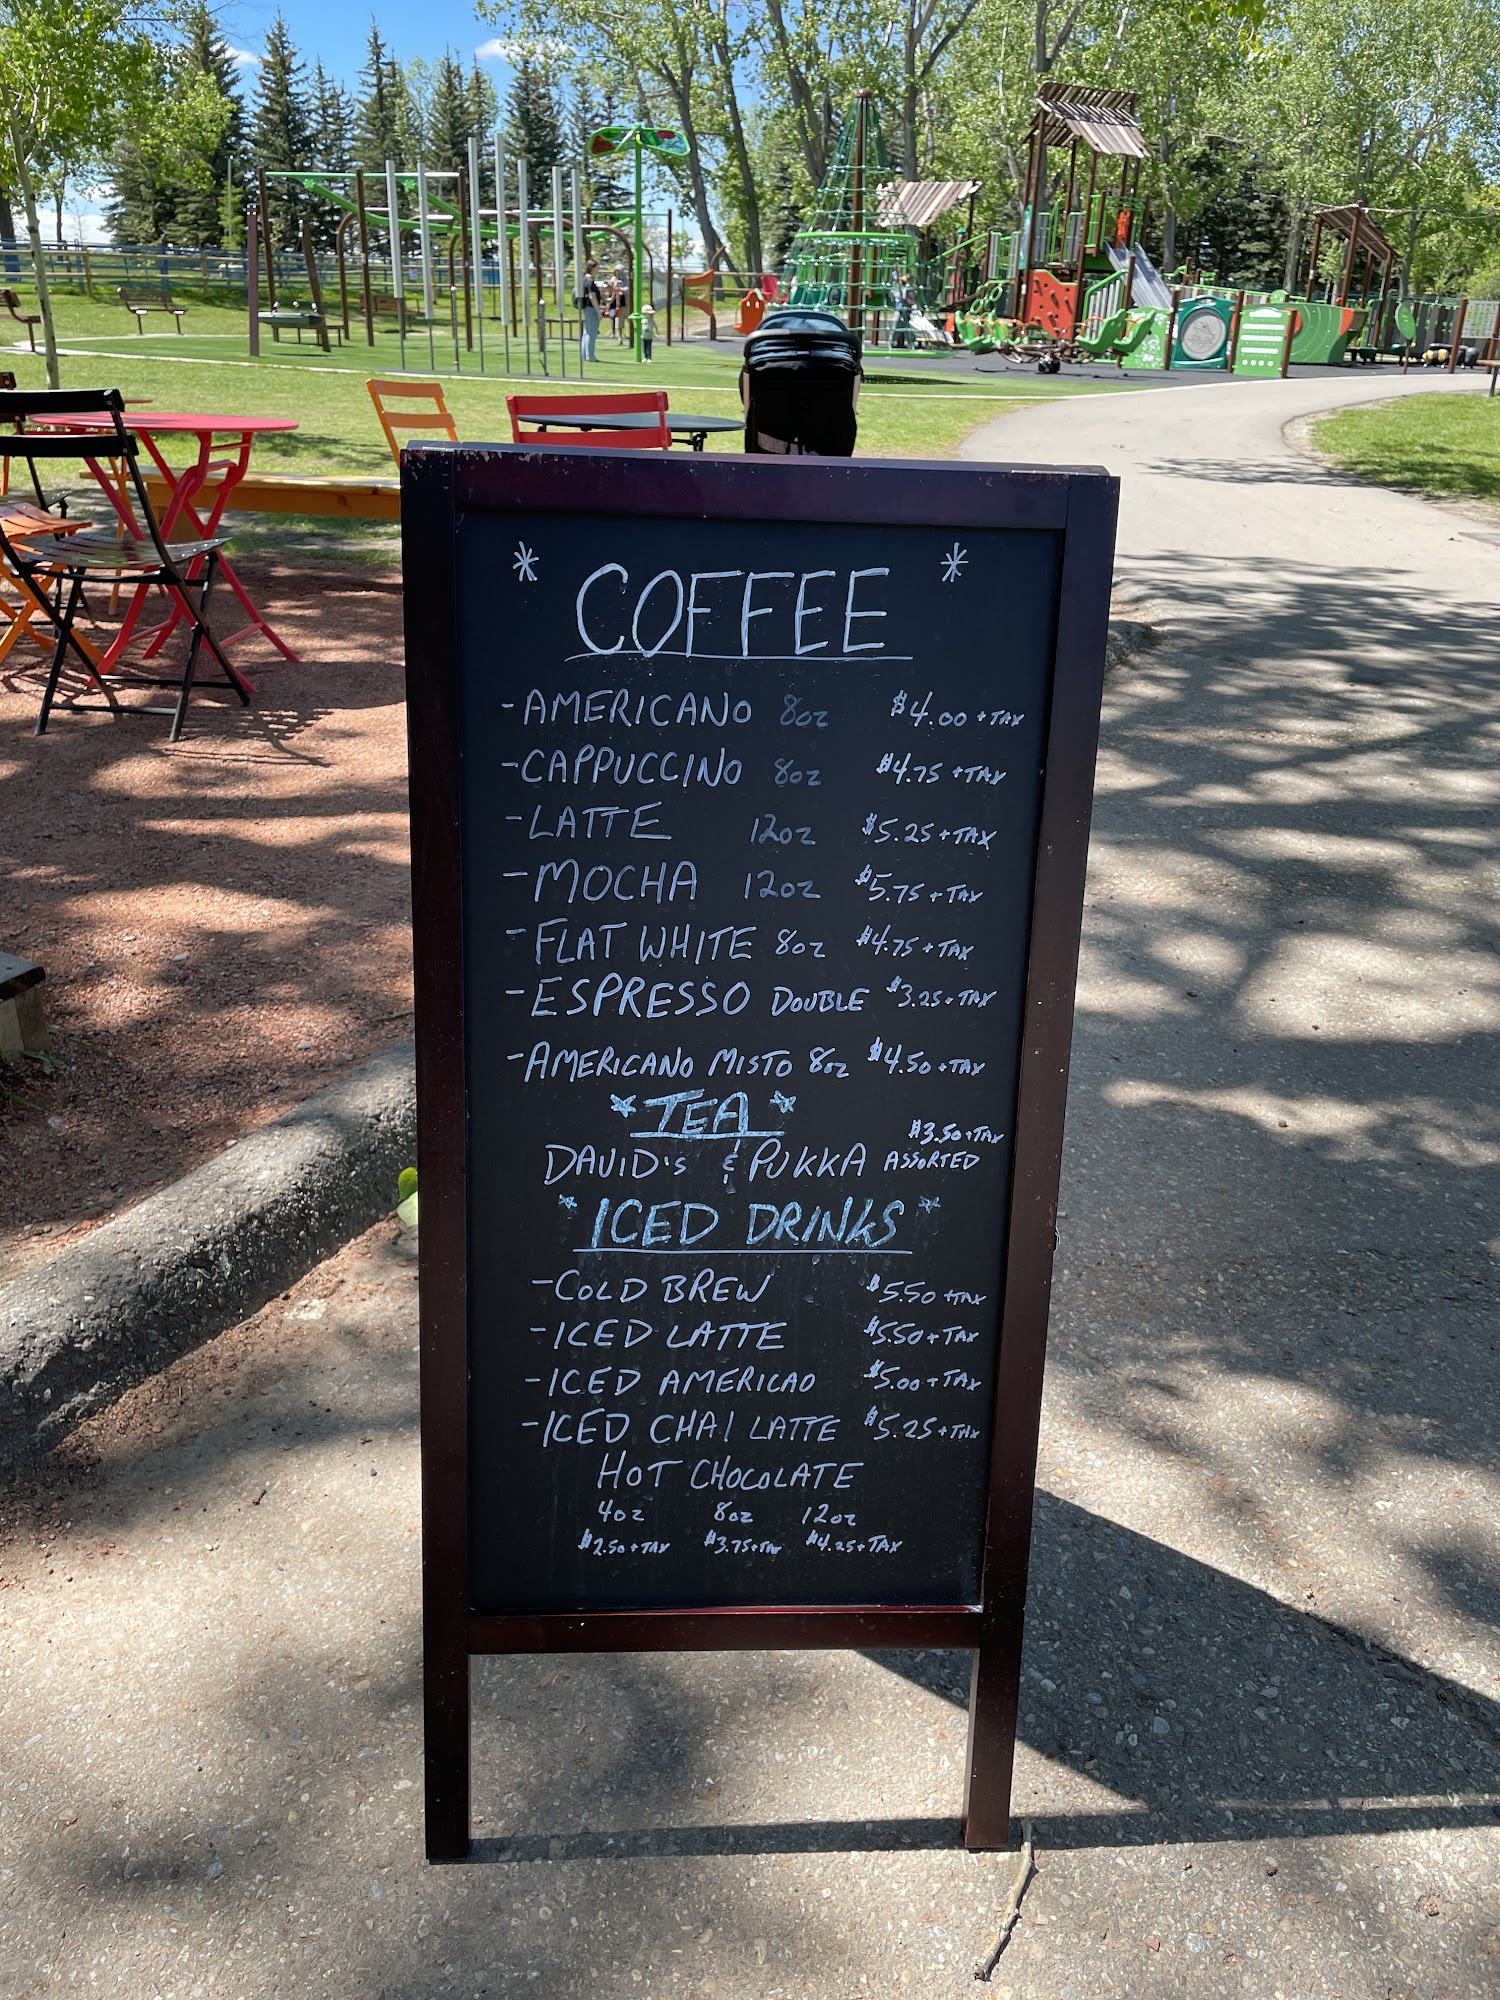 * COFFEE *
- AMERICANO 8oz $4.00 + TAX
- CAPPUCCINO 8oz $4.75 + TAX
- LATTE 12oz $5.25 + TAX
- MOCHA 12oz $5.75 + TAX
- FLAT WHITE 8oz $4.75 + TAX
- ESPRESSO DOUBLE $3.25 + TAX
- AMERICANO MISTO 8oz $4.50 + TAX
* TEA *
$3.50 + TAX
DAVID'S & PUKKA ASSORTED
* ICED DRINKS *
- COLD BREW $5.50 + TAX
- ICED LATTE $5.50 + TAX
- ICED AMERICAO $5.00 + TAX
- ICED CHAI LATTE $5.25 + TAX
HOT CHOCOLATE
4oz 8oz 12oz
$2.50 + TAX $3.75 + TAX $4.25 + TAX